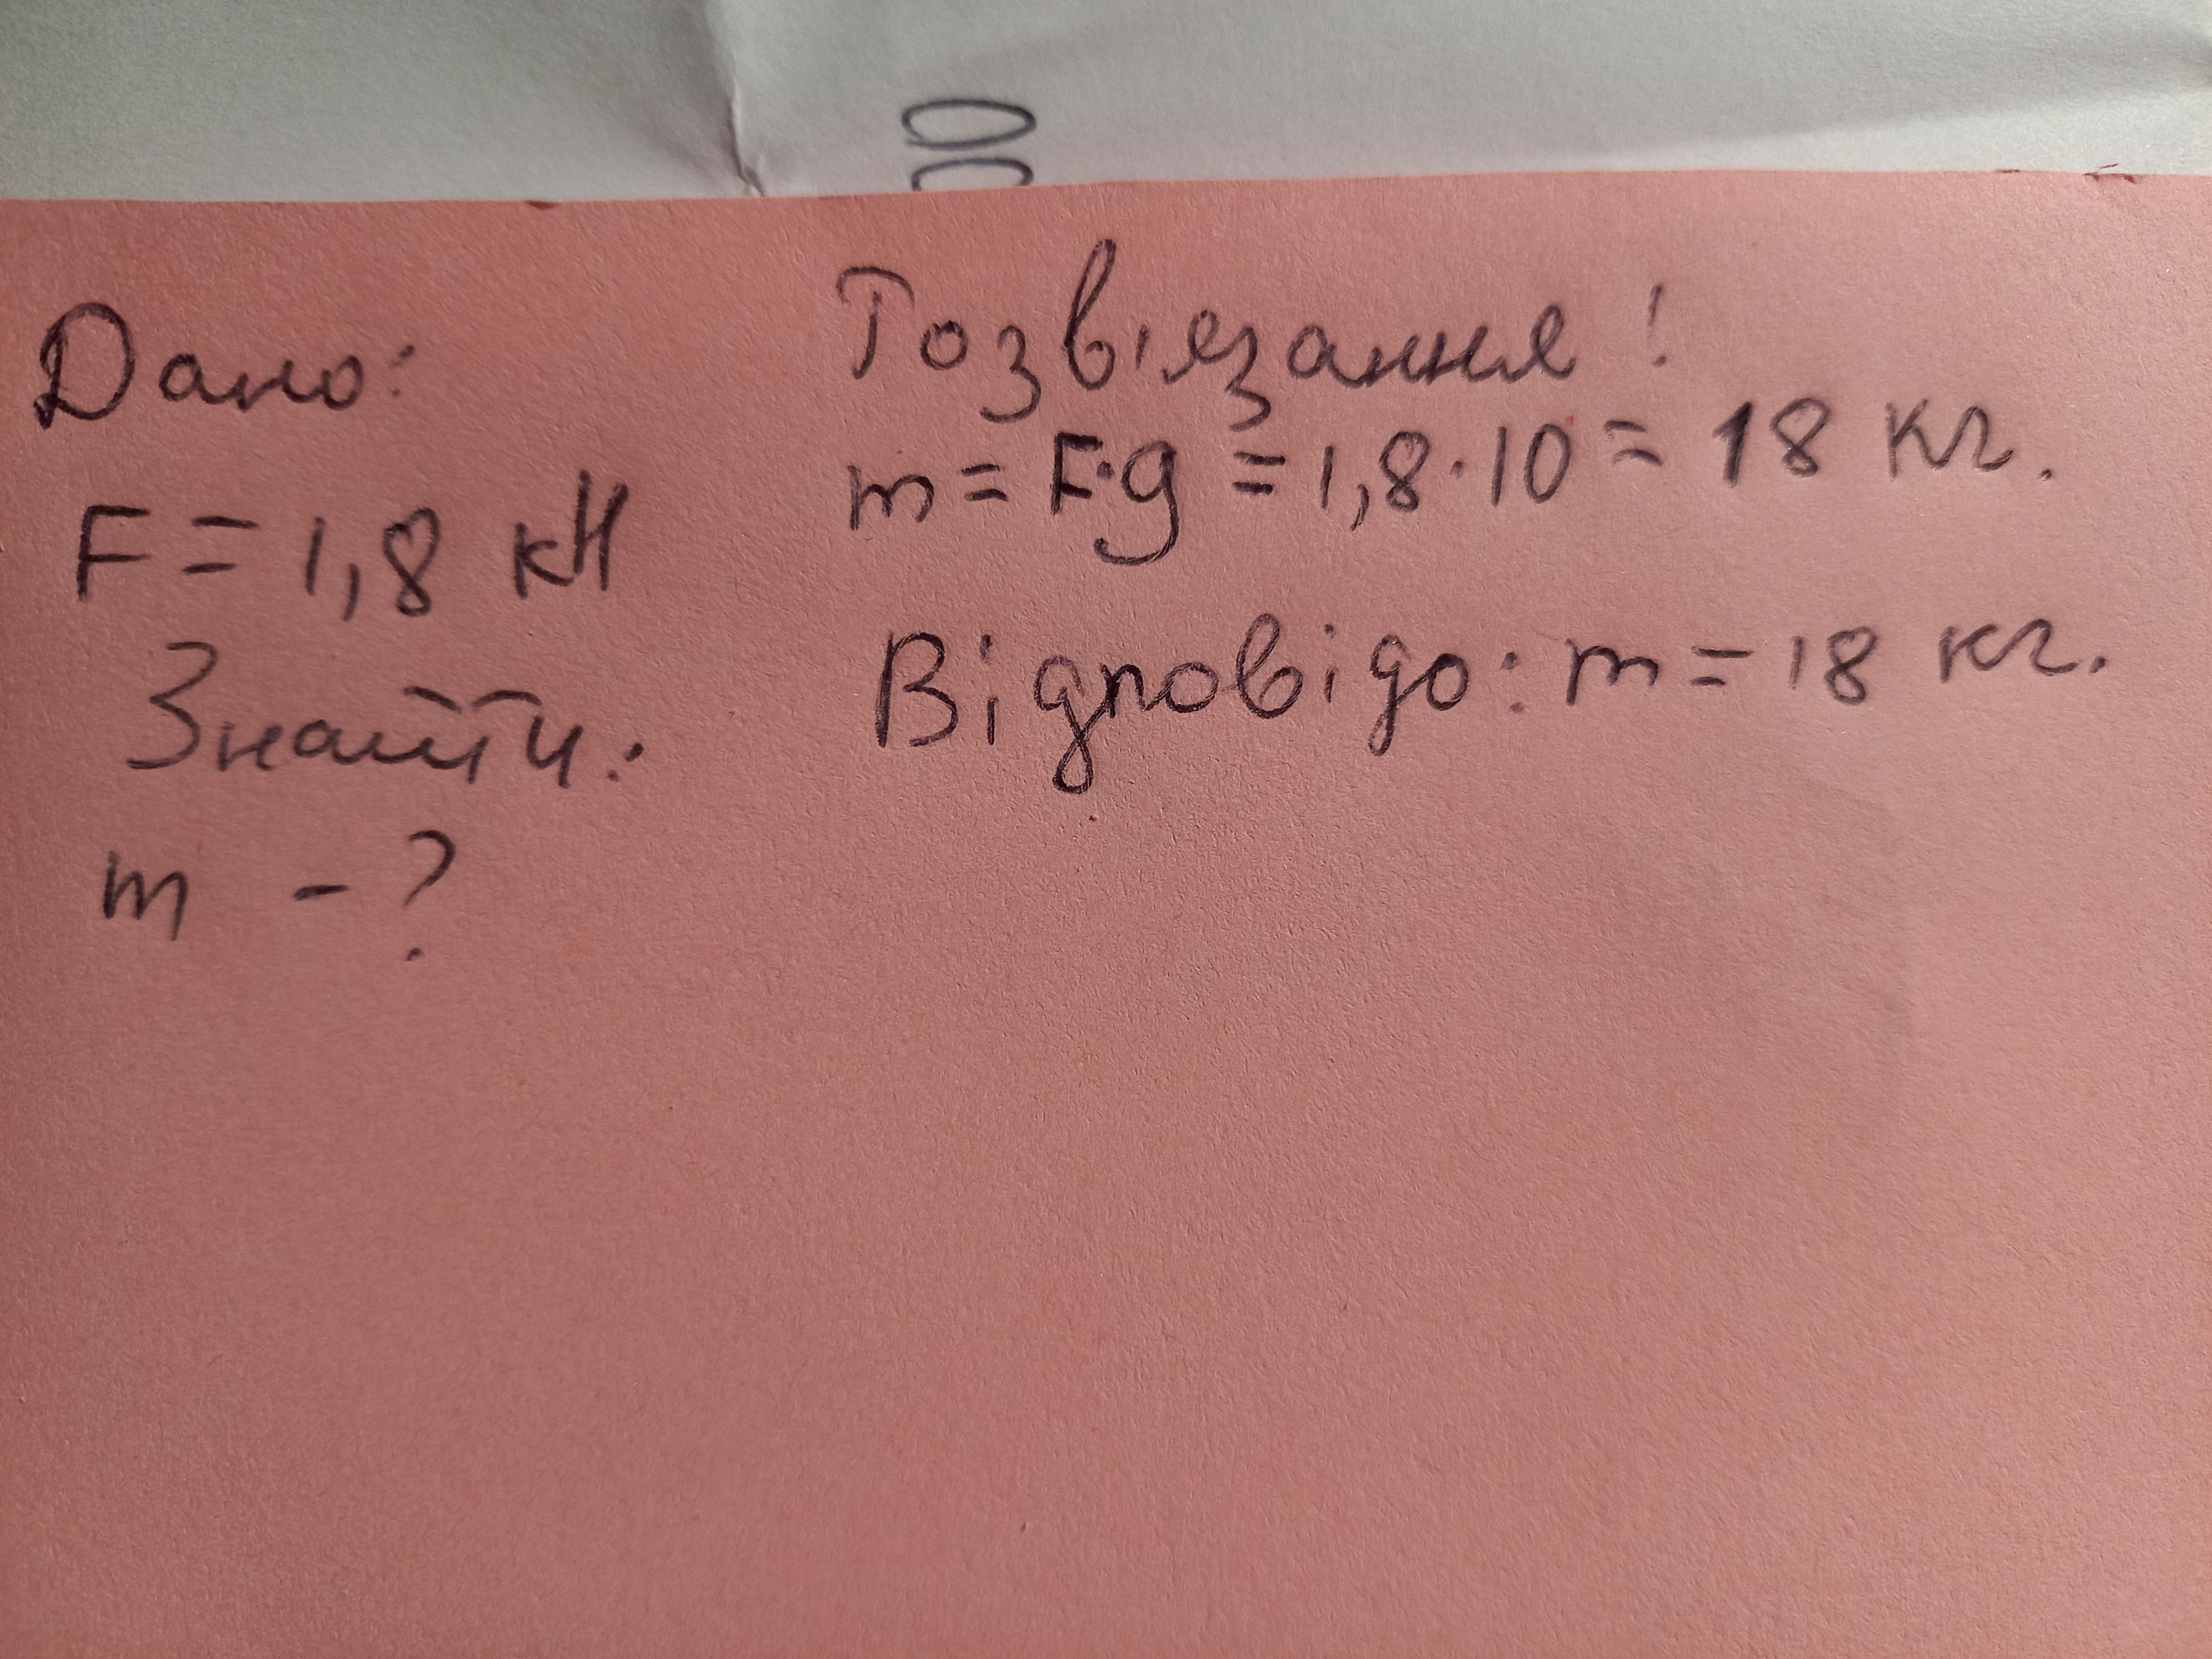 00
Дано:
F = 1,8 кН
Знайти:
m - ?
Розвязання:
m = F·g = 1,8·10 = 18 кг.
Відповідо: m = 18 кг.